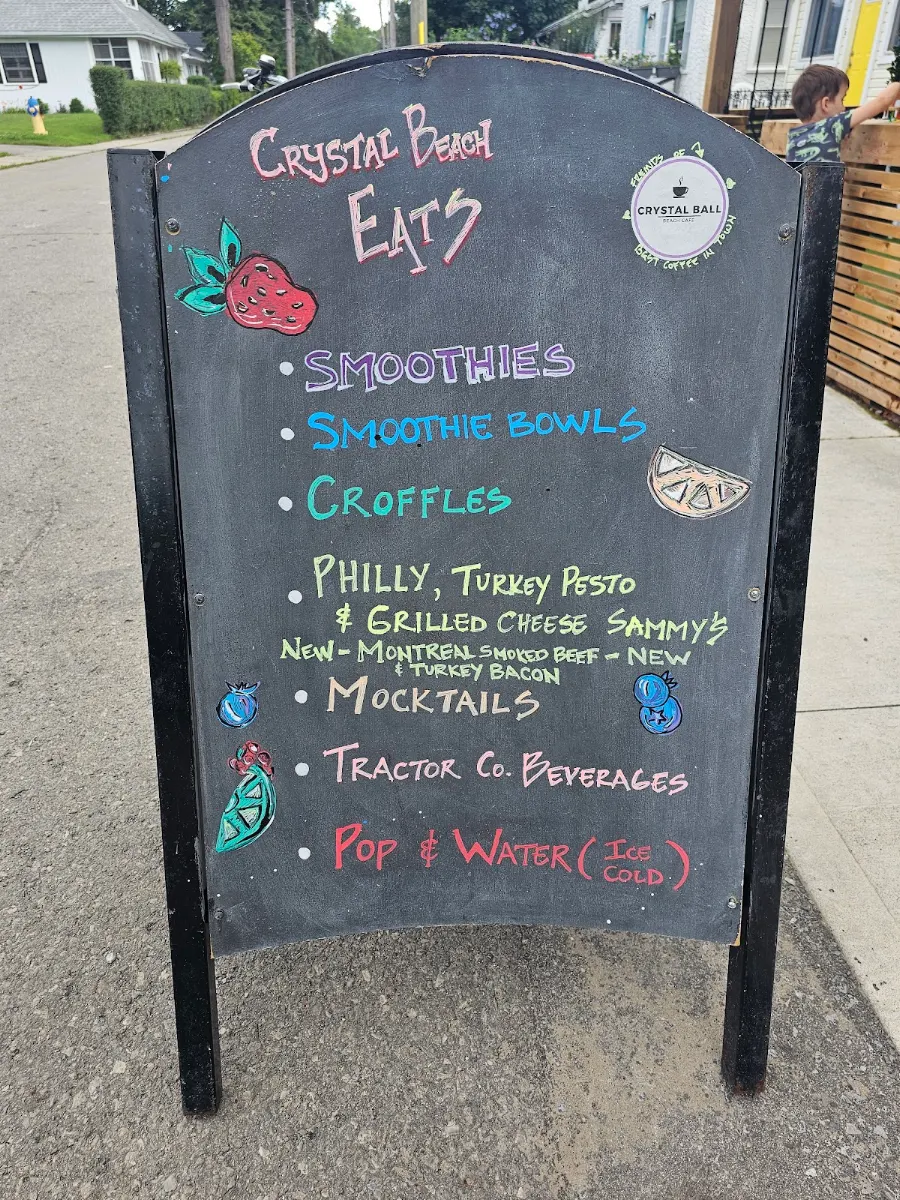 CRYSTAL BEACH
EATS
FREINDS OF
CRYSTAL BALL
BEACH CAFE
BEST COFFEE IN TOWN
• SMOOTHIES
• SMOOTHIE BOWLS
• CROFFLES
• PHILLY, TURKEY PESTO
& GRILLED CHEESE SAMMY'S
NEW - MONTREAL SMOKED BEEF - NEW
& TURKEY BACON
• MOCKTAILS
• TRACTOR CO. BEVERAGES
• POP & WATER (ICE
COLD)